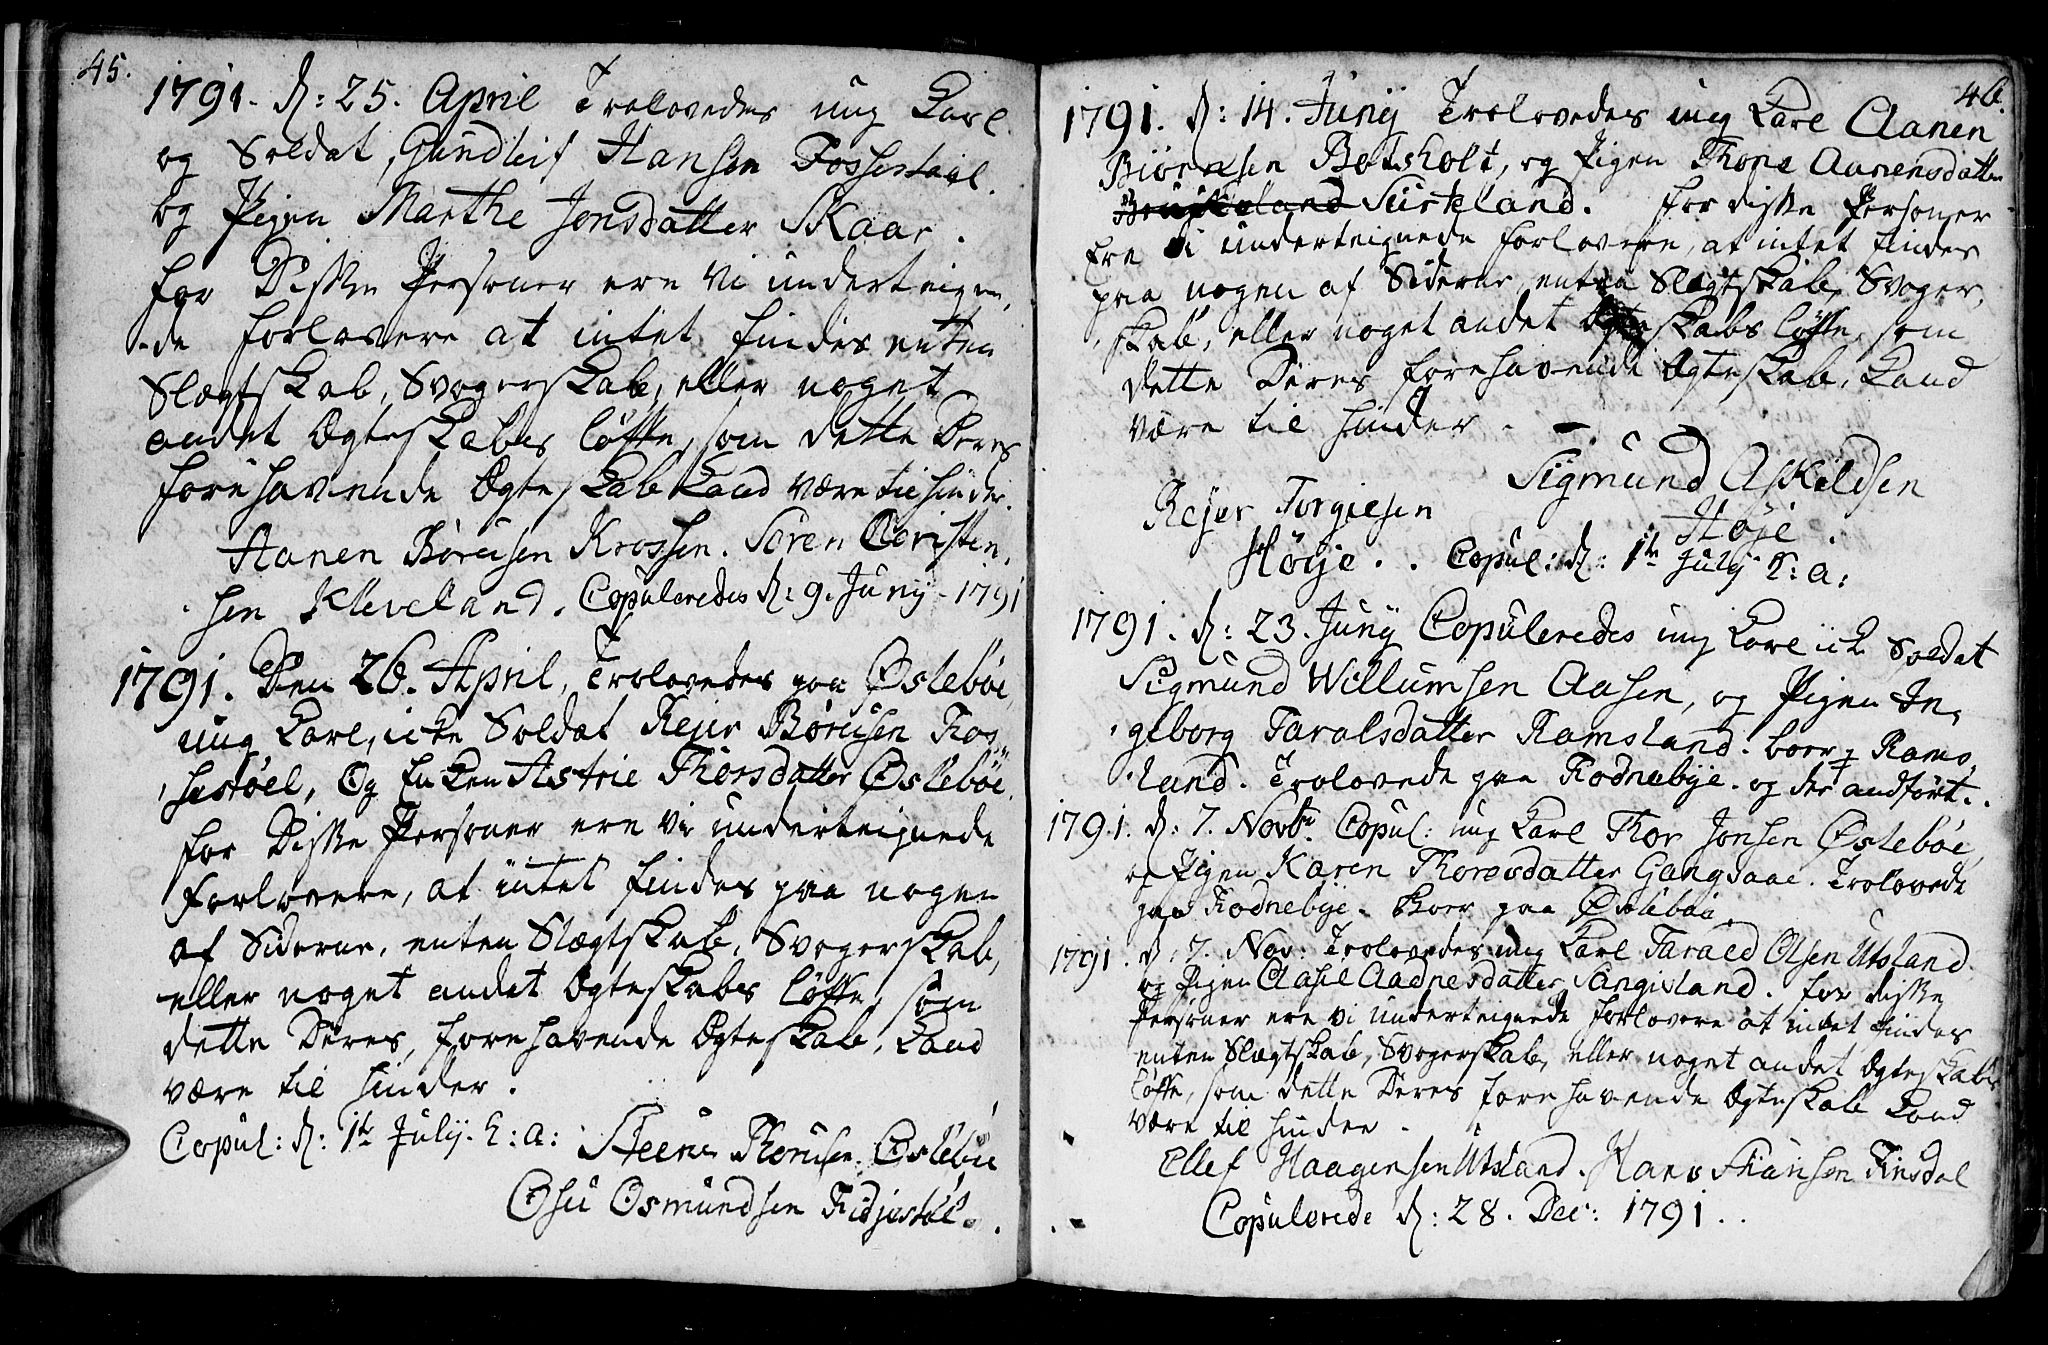 45.
1791. d: 25. April Trolovedes ung Karl
og Soldat, Gundleif Hansen Fossestaal.
og Pigen Marthe Jonsdatter Skaar.
for Disse Personer ere Vi underteigne,
-de forlovere at intet findes enten
Slægtskab, Svogerskab, eller noget
andet Ægteskabes løffte, som dette Deres
forehavende Ægteskab kand være til hinder.
Aanen Børusen Krossen. Søren Christen,
sen Kleveland. Copuleredes d: 9. Junÿ - 1791
1791. Den 26. April, Trolovedes paa Østebøe,
ung Karl, icke Soldat Rejer Børusen
og Enken Astrie Thorsdatter Østebøe.
for Disse Personer ere Vi underteignede
forlovere, at intet findes paa nogen
af Siderne, enten Slægtskab, Svogerskab,
eller noget andet Ægteskabs løffte, som
dette Deres, forehavende Ægteskab, kand
være til hinder.
Copul: d: 1te Julÿ. h: a: Steen Thorusen Østebøe
Osu Osmundsen Fidjestøl.
46.
1791. d: 14. Junÿ Trolovedes ung Karl Aanen
Biørnsen Botsholt, og Pigen Thone Aanensdatter
Sürkland. for disse Personer
ere vi underteignede forlovere, at intet findes
paa nogen af Siderne, enten Slægtskab, Svoger,
skab, eller noget andet Ægteskabs løffte, som
dette Deres forehavende Ægteskab, kand
være til hinder.
Sigmund Askeldsen
Rejer Torgiesen Høje.
Høije. Copul: d: 1te Julÿ h: a:
1791. d: 23. Junÿ Copuleredes ung Karl ick Soldat
Sigmund Willumsen Aasen, og Pigen In,
geborg Taralsdatter Ramsland. boer p Rams,
land. Trolovede paa Rodnebÿe. og der andført.
1791. d: 7. Novbr Copul: ung Karl Thor Jonsen Østebøe,
og Pigen Karen Thoresdatter Gangsaae. Trolovede
paa Rodnebÿe. Boer paa Østebøe.
1791. d. 7. Nov: Trolovedes ung Karl Tarald Olsen Utsland
og Pigen Aasel Aadnesdatter Sangisland. for disse
Personer ere vi underteignede forlovere at intet findes
enten Slægtskab, Svogerskab, eller noget andet Ægteskabs
løffte, som dette Deres forehavende Ægteskab kand
være til hinder.
Ellef Haagensen Utsland. Hans Finsdal
Copulerede d: 28. Dec: 1791.